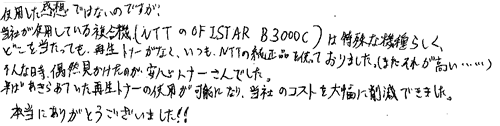 使用した感想ではないのですが、
当社が使用している複合機(NTTのOFISTAR B3000C)は特殊な機種らしく、
どこを当たっても、再生トナーがなく、いつも、NTTの純正品を使っておりました。(またそれが高い……)
そんな時、偶然見かけたのが安心トナーさんでした。
半ばあきらめていた再生トナーの使用が可能になり、当社のコストを大幅に削減できました。
本当にありがとうございました!!